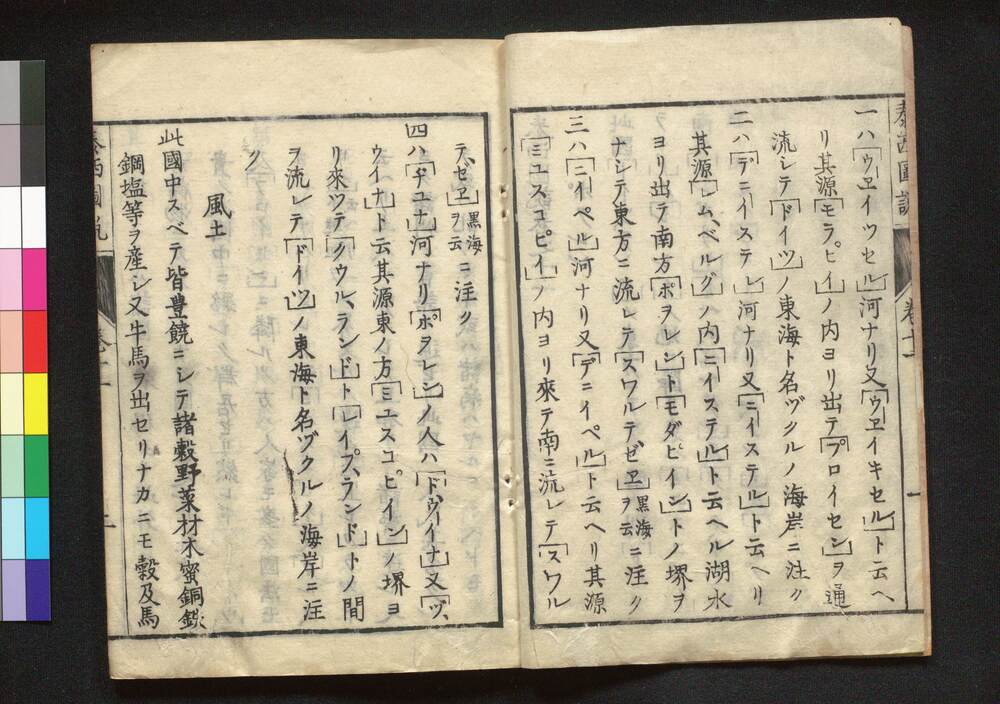 泰西圖説
卷十二
一ハ「ウヱイツセル」河ナリ又「ウヱイキセル」ト云ヘ
リ其源「モラビイ」ノ内ヨリ出テ「プロイセン」ヲ通
流レテ「ドイツ」ノ東海ト名ヅクルノ海岸ニ注ク
二ハ「デニイステレ」河ナリ又「ニイステル」ト云ヘリ
其源「レムベルグ」ノ内「ニイステル」ト云ヘル湖水
ヨリ出テ南方「ポヲレン」ト「モダビイン」トノ堺ヲ
ナシテ東方ニ流レテ「スワルテ、ゼヱ」黒海ヲ云ニ注ク
三ハ「ニイペル」河ナリ又「デニイペル」ト云ヘリ其源
「ミユスコピイ」ノ内ヨリ來テ南ニ流レテ「スワル
テ、ゼヱ」黒海ヲ云ニ注ク
四ハ「ヂユナ」河ナリ「ポヲレン」ノ人ハ「ドウイナ」又「ヅ、
ウイナ」ト云其源東ノ方「ミユスコピイン」ノ堺ヨ
リ來ツテ「クウル、ランド」ト「レイフ、ランド」トノ間
ヲ流レテ「ドイツ」ノ東海ト名ヅクルノ海岸ニ注
ク
風土
此國中スベテ皆豊饒ニシテ諸穀野菜材木蜜銅鉄
鋼塩等ヲ産シ又牛馬ヲ出セリナカニモ穀及馬
泰西圖説
二